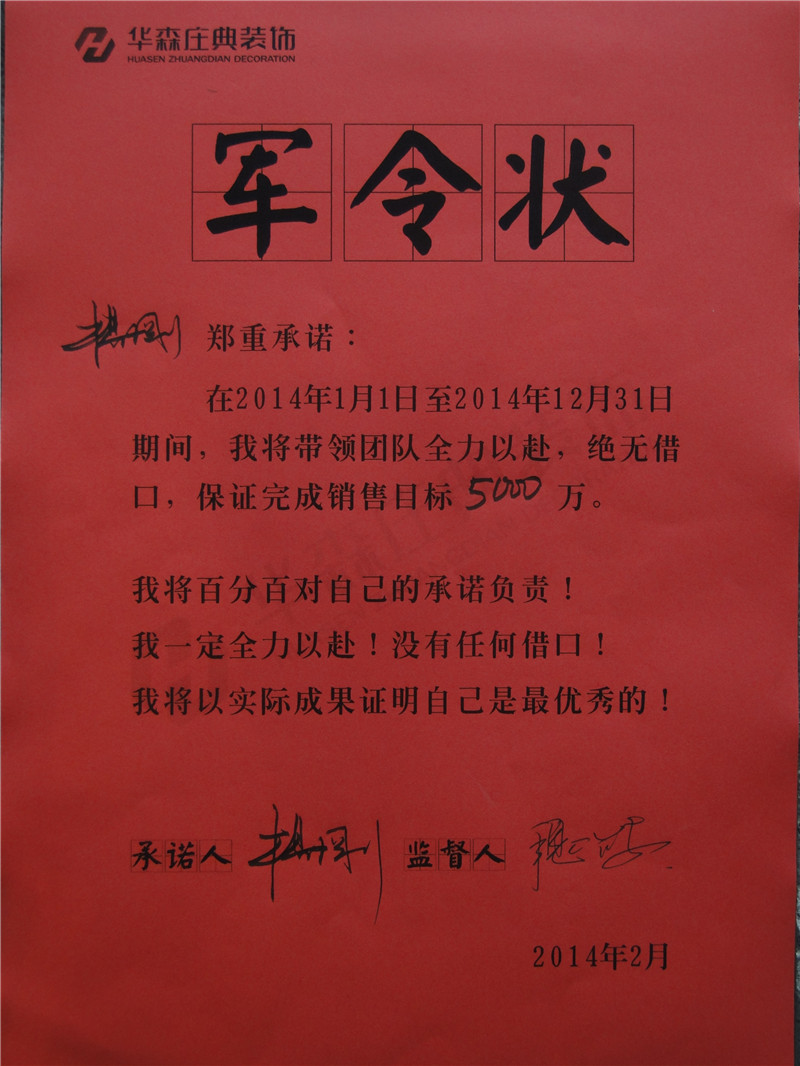 华森庄典装饰
HUASEN ZHUANGDIAN DECORATION
军令状
郑重承诺：
在2014年1月1日至2014年12月31日
期间，我将带领团队全力以赴，绝无借
口，保证完成销售目标 5000 万。
我将百分百对自己的承诺负责！
我一定全力以赴！没有任何借口！
我将以实际成果证明自己是最优秀的！
承诺人 监督人
2014年2月